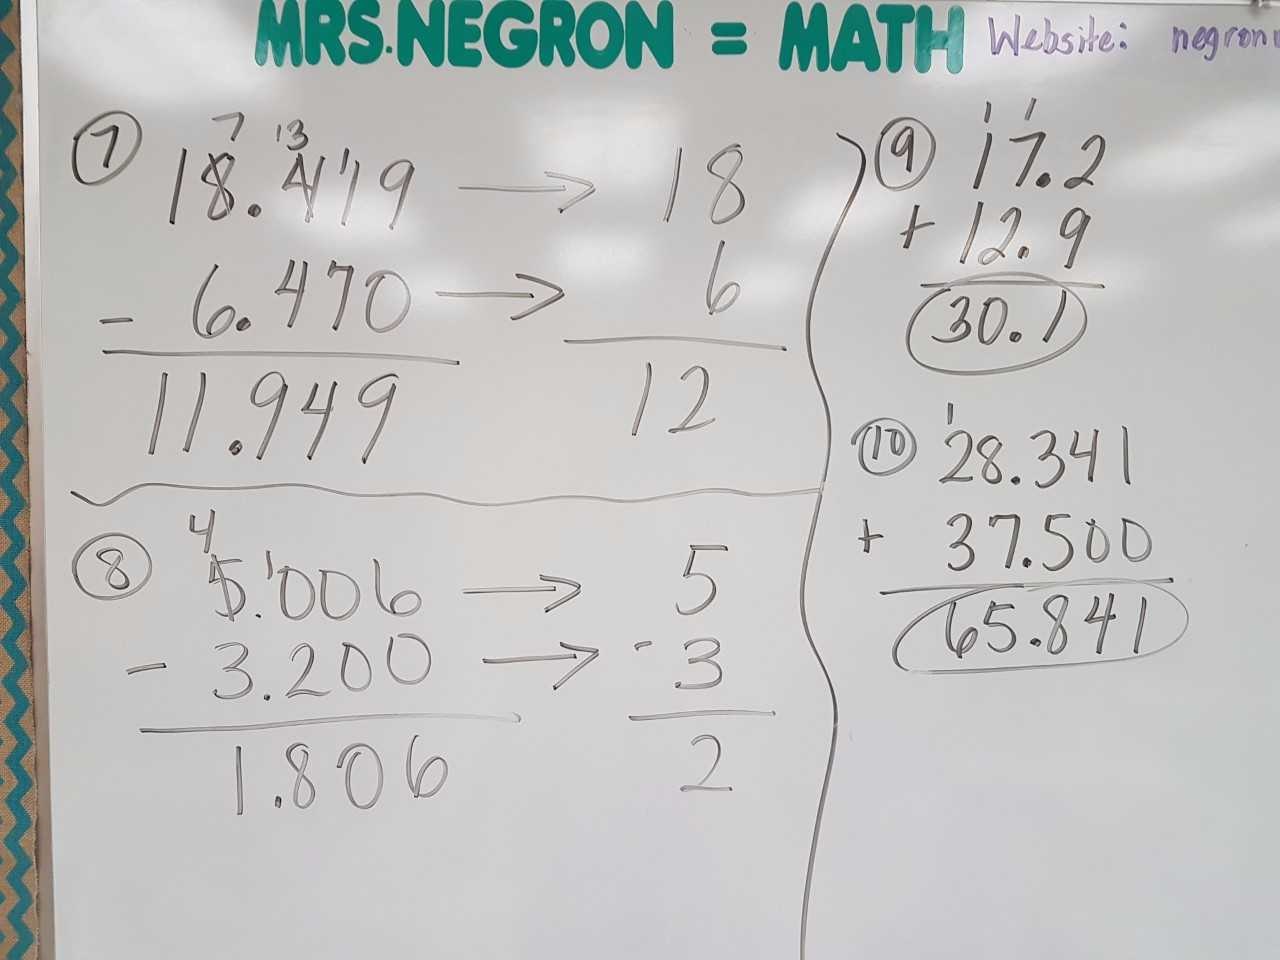 MRS. NEGRON = MATH Website: negron
7
7 13
18.4119 → 18
- 6.470 → 6
11.949 12
8
4
5.1006 → 5
- 3.200 → - 3
1.806 2
9
1 1
17.2
+ 12.9
30.1
10
1
28.341
+ 37.500
65.841